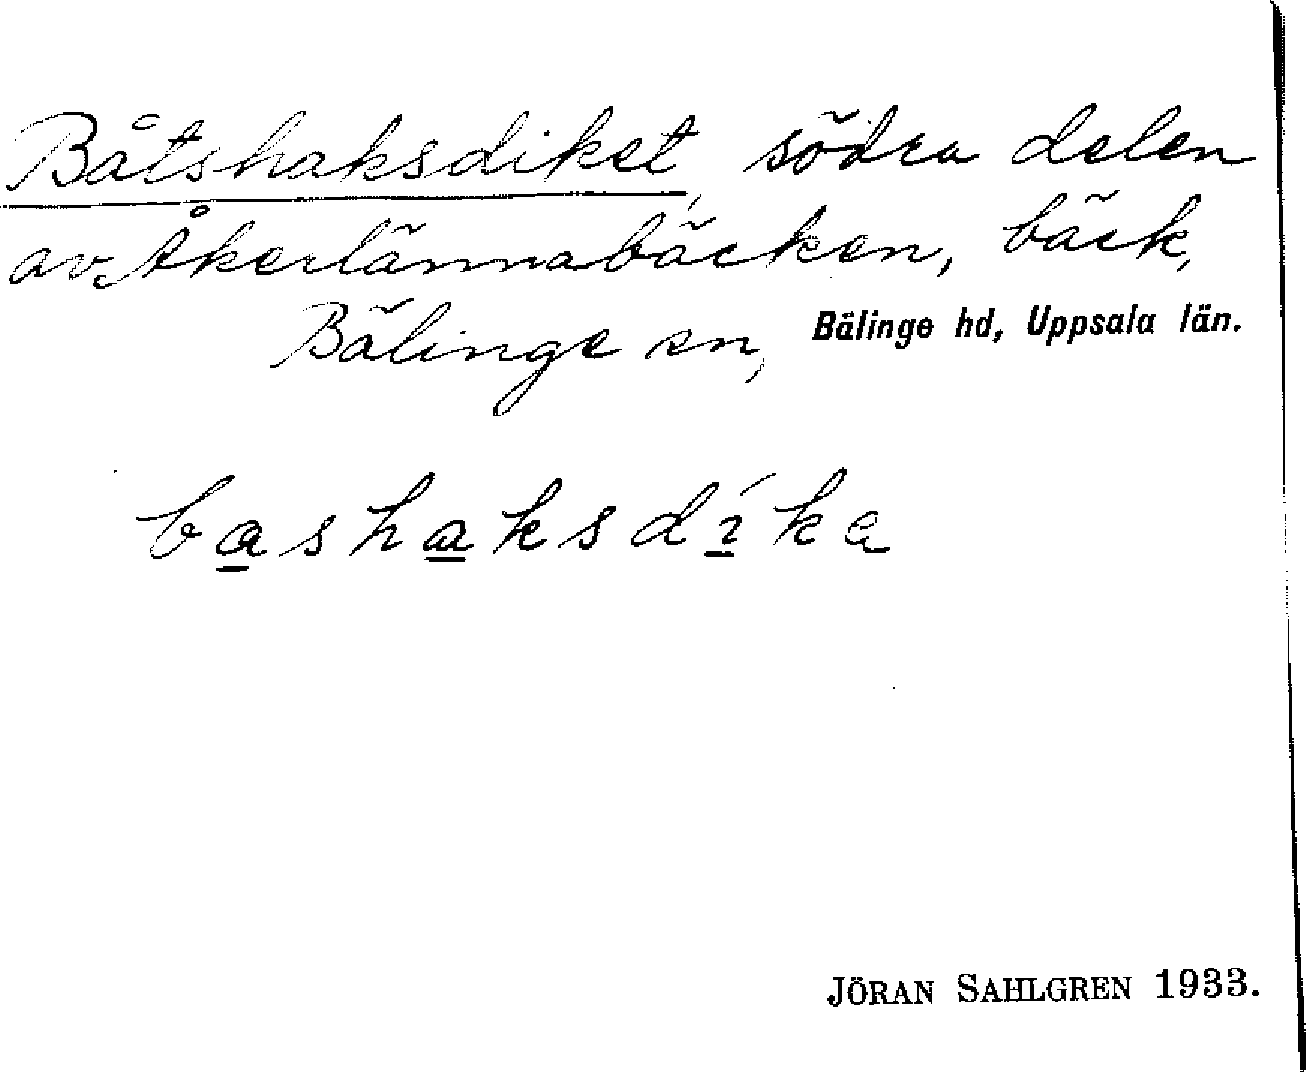 Båtshaksdiket, södra delen
av Åkerlännabäcken, bäck,
Bälinge sn, Bälinge hd, Uppsala län.
bashaksdíka
JÖRAN SAHLGREN 1933.